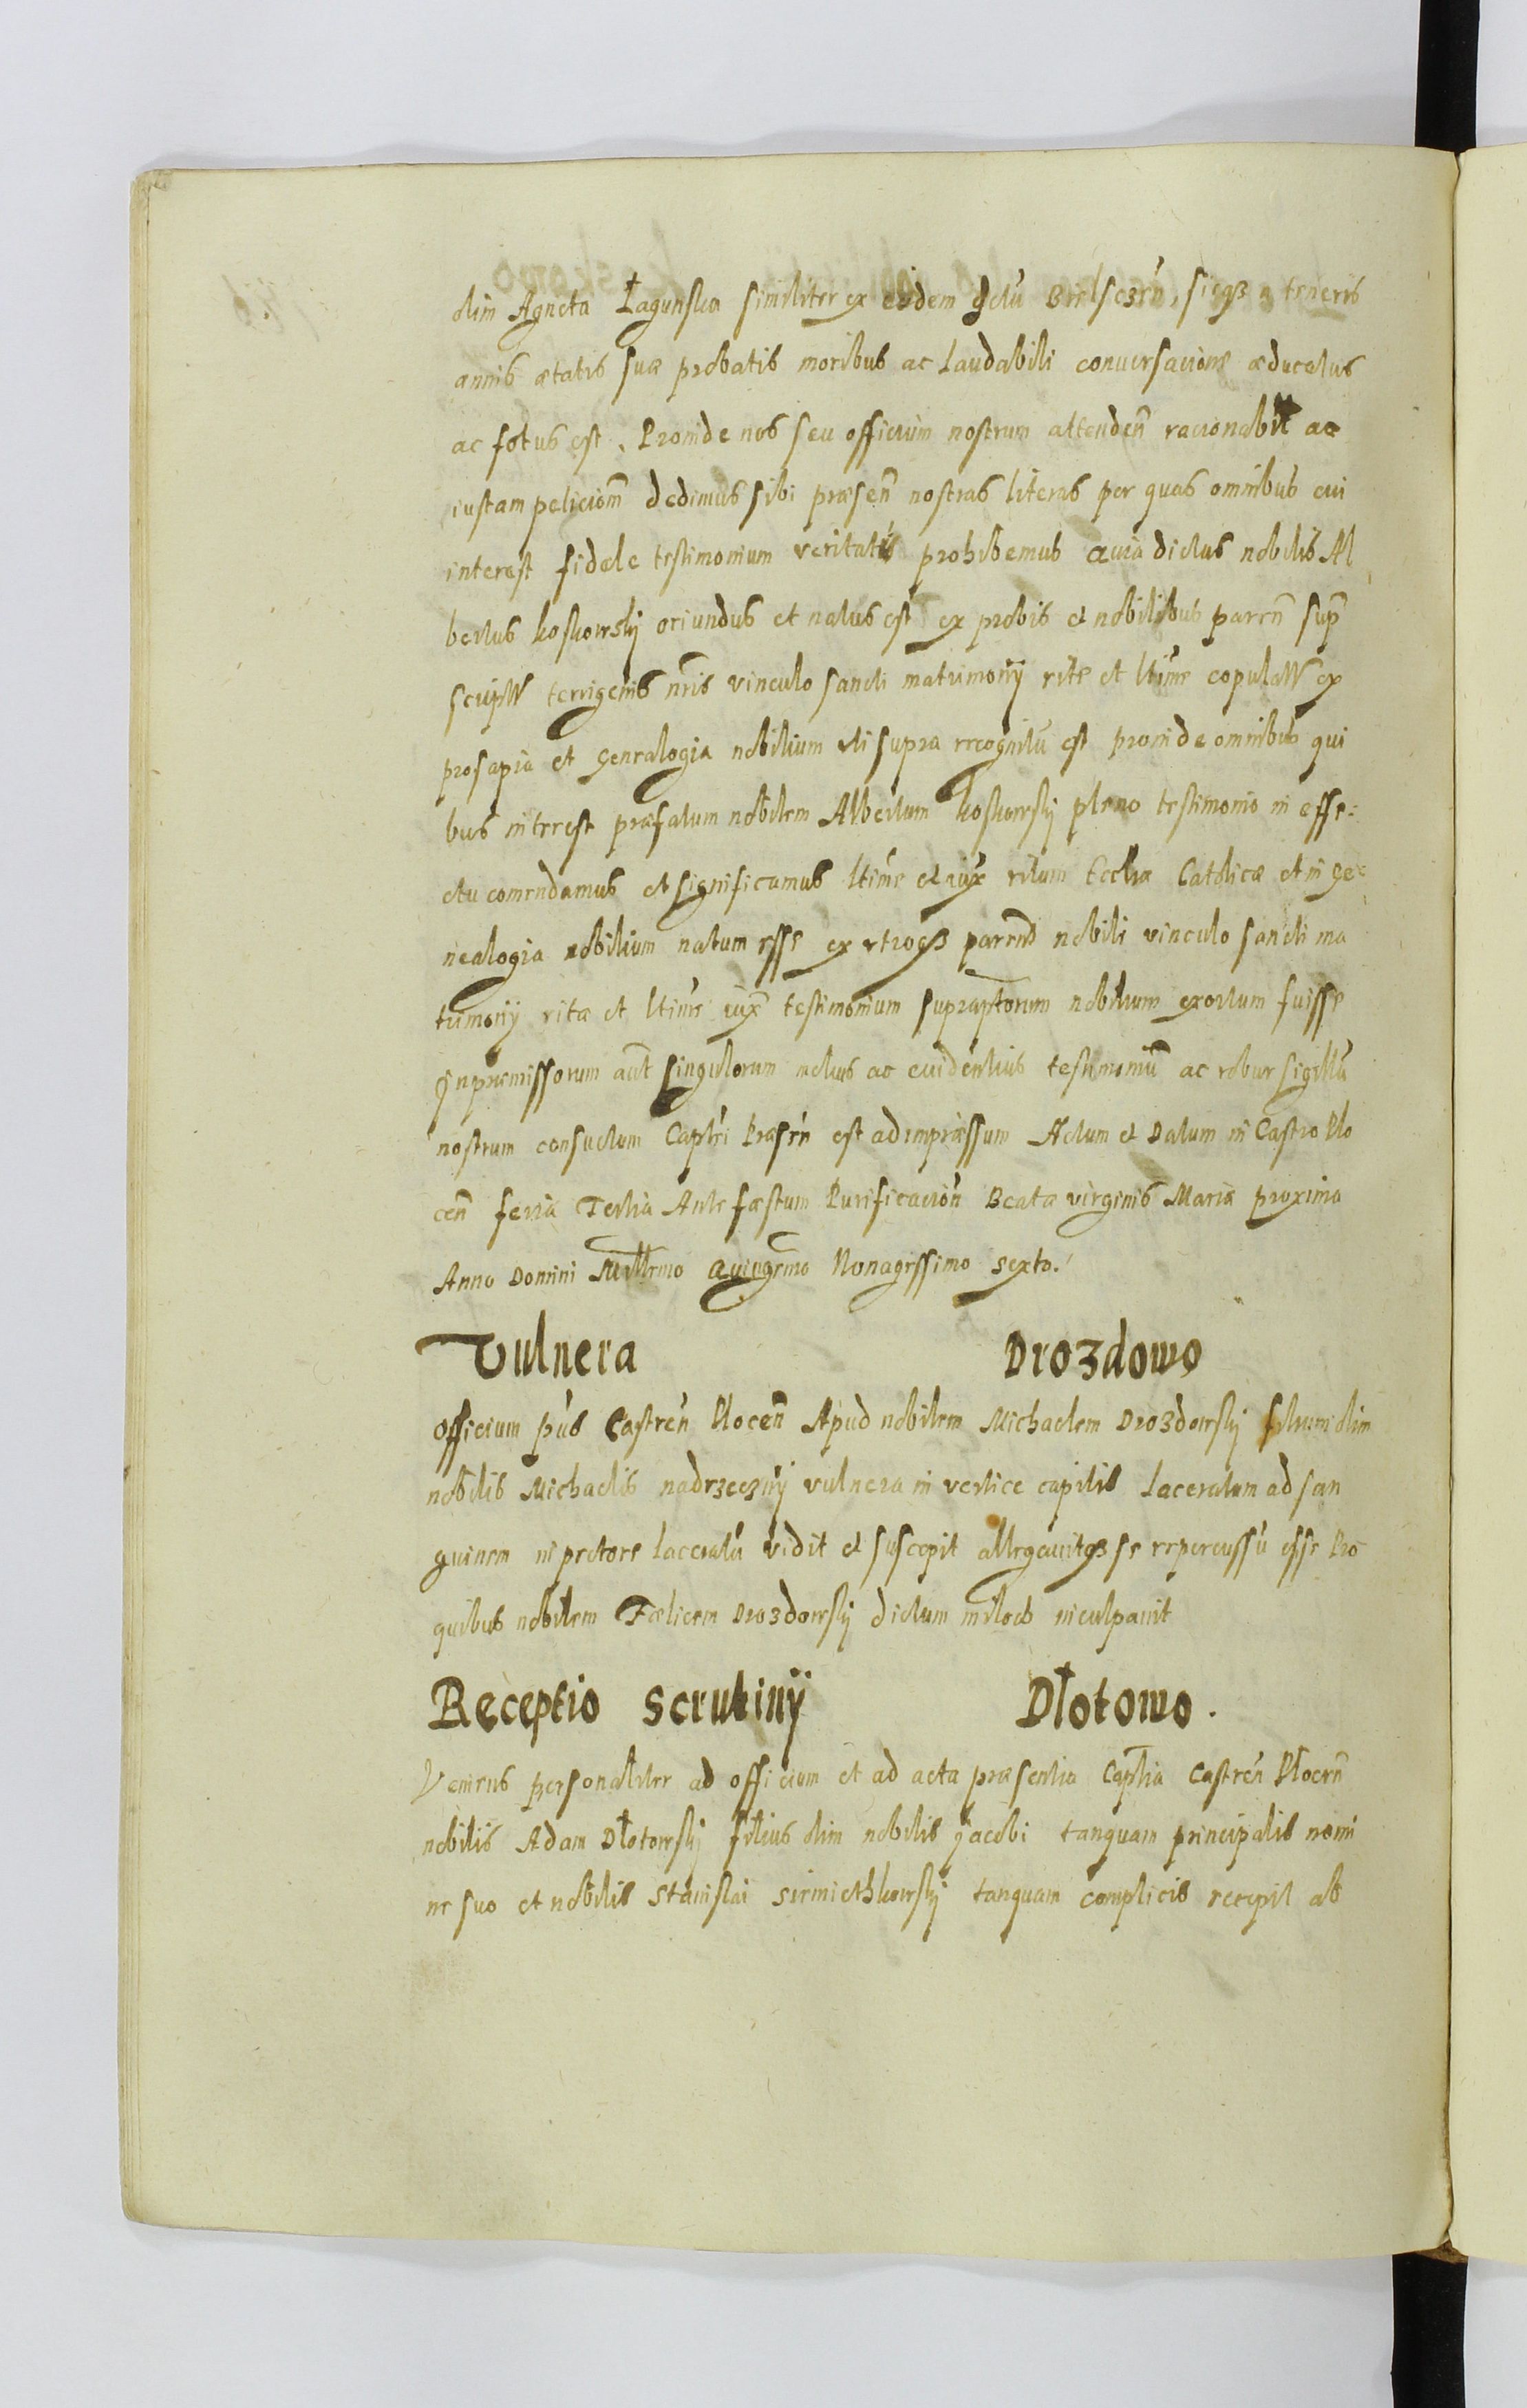 olim Agneta Łagunska similiter ex eadem dctu Bielsczeñ, sicqз a teneris
annis ætatis suæ probatis moribus ac laudabili conuersacione æducatus
ac fotus est. Proinde nos seu officium nostrum attendeñ racionabilẽ ac
iustam peticiom̃ dedimus sibi præseñ nostras literas per quas omnibus cui
interest fidele testimonium veritatis prohibemus Quia dictus nobilis Al
bertus koskowskÿ oriundus et natus est ex probis et nobilibus pareñ sup̃
script terrigenis nr̃is vinculo sancti matrimonÿ rite et ltime copulat ex
prosapia et genealogia nobilium uti supra recognitũ est proinde omnibus qui
bus interest præfatum nobilem Albertum koskowskÿ pleno testimonio in effe=
ctu comendamus et significamus ltime et iux̃ ritum Ecclia Catolicæ et in ge=
nealogia nobilium natum esse ex utroqз parend nobili vinculo sancti ma
trimonÿ ritæ et ltime iux̃ testimonium supraptorum nobilium exortum fuisse
Jn præmissorum aũt singulorum melius ac euidentius testimoniũ ac robur sigillũ
nostrum consuetum Capt̃ri Præseñ est ad impræssum Actum et Datum in Castro Plo
ceñ feria Tertia Ante fæstum Purificacioñ Beatæ virginis Mariæ proxima
Anno Domini Millemo Quingemo Nonagessimo sexto.
Vulnera Drozdowo
Officium pñs Castreñ Ploceñ Apud nobilem Michaelem Drozdowskÿ filium olim
nobilis Michaelis nadrzecznÿ vulnera in vertice capitis laceratum ad san
guinem in pectore laceratũ vidit et suscepit allegauitqз se repercussũ esse Pro
quibus nobilem Fælicem Drozdowskÿ dictum miloch inculpauit
Receptio Scrutinÿ Dłotowo.
Veniens personaliter ad officium et ad acta præsentia Captlia Castreñ Płoceñ
nobilis Adam Dłotowskÿ filius olim nobilis Jacobi tanquam principalis nomi
ne suo et nobilis Stanislai siemiethkowskÿ tanquam complicis recepit ab